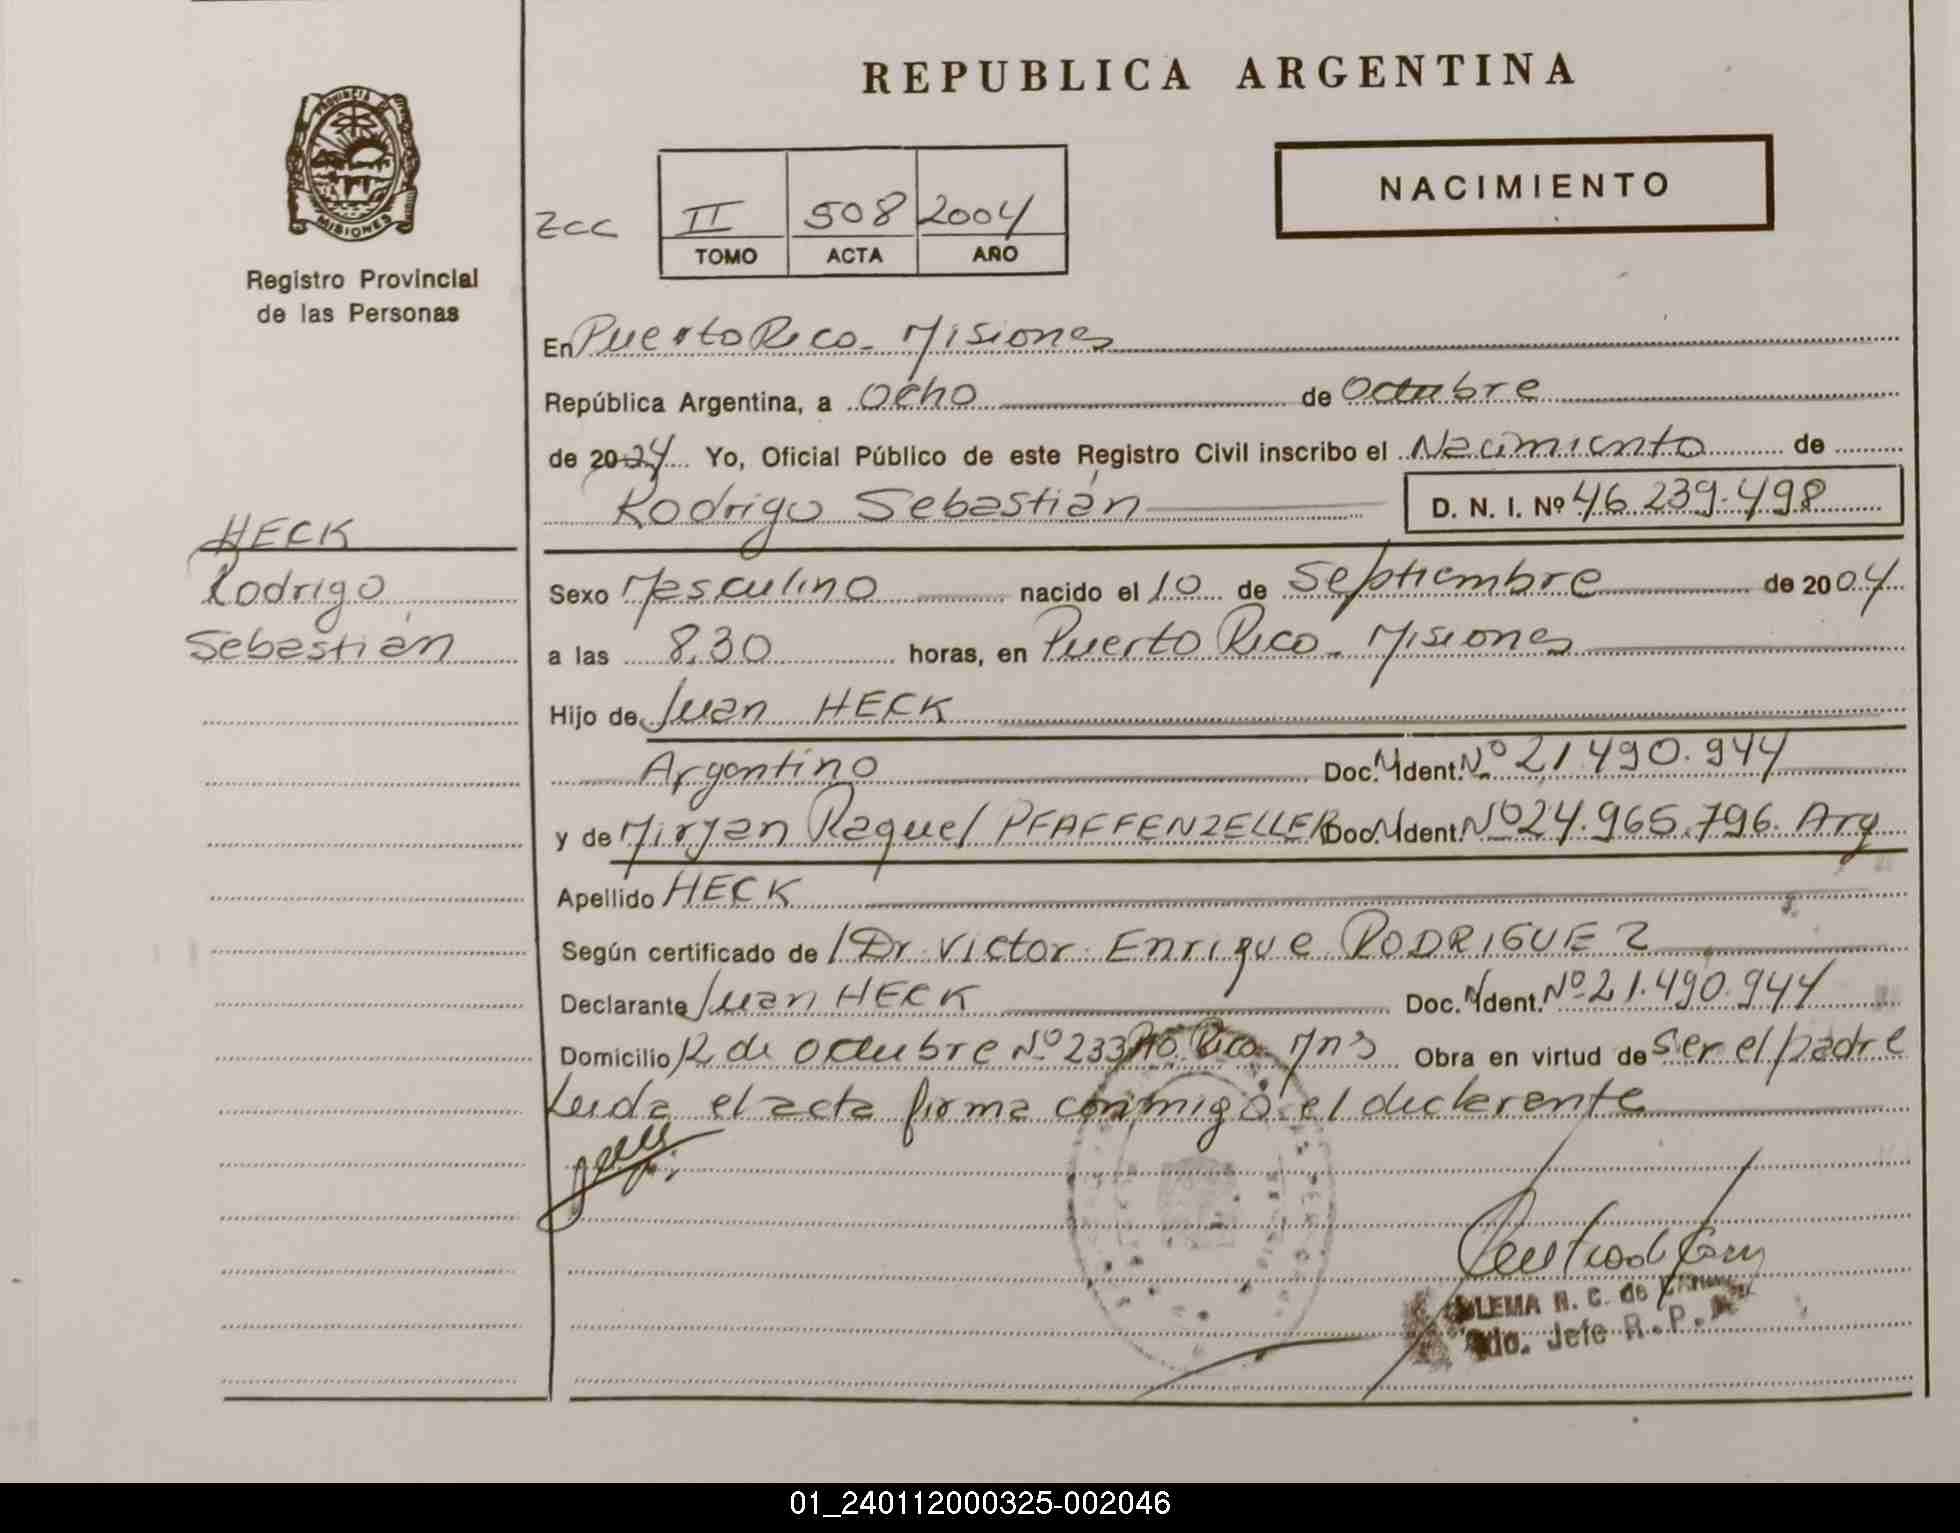 REPUBLICA ARGENTINA
NACIMIENTO
PROVINCIA DE
MISIONES
Registro Provincial
de las Personas
II 508 2004
TOMO ACTA AÑO
En Puerto Rico - Misiones
República Argentina, a Ocho de Octubre
de 2004 Yo, Oficial Público de este Registro Civil inscribo el Nacimiento de
Rodrigo Sebastián D. N. I. Nº 46.239.498
HECK
Rodrigo
Sebastián
Sexo Masculino nacido el 10 de Septiembre de 2004
a las 8,30 horas, en Puerto Rico - Misiones
Hijo de Juan HECK
Argentino Doc. Ident. Nº 21.490.944
y de Miryan Raquel PFAFFENZELLER Doc. Ident. Nº 24.965.796. Arg
Apellido HECK
Según certificado de Dr. Victor Enrique RODRIGUEZ
Declarante Juan HECK Doc. Ident. Nº 21.490.944
Domicilio 12 de Octubre Nº 233 Pto. Rico - Mns Obra en virtud de ser el padre
Leida el acta firma conmigo el declarante
LEMA R. C. de
Jefe R. P.
01_240112000325-002046